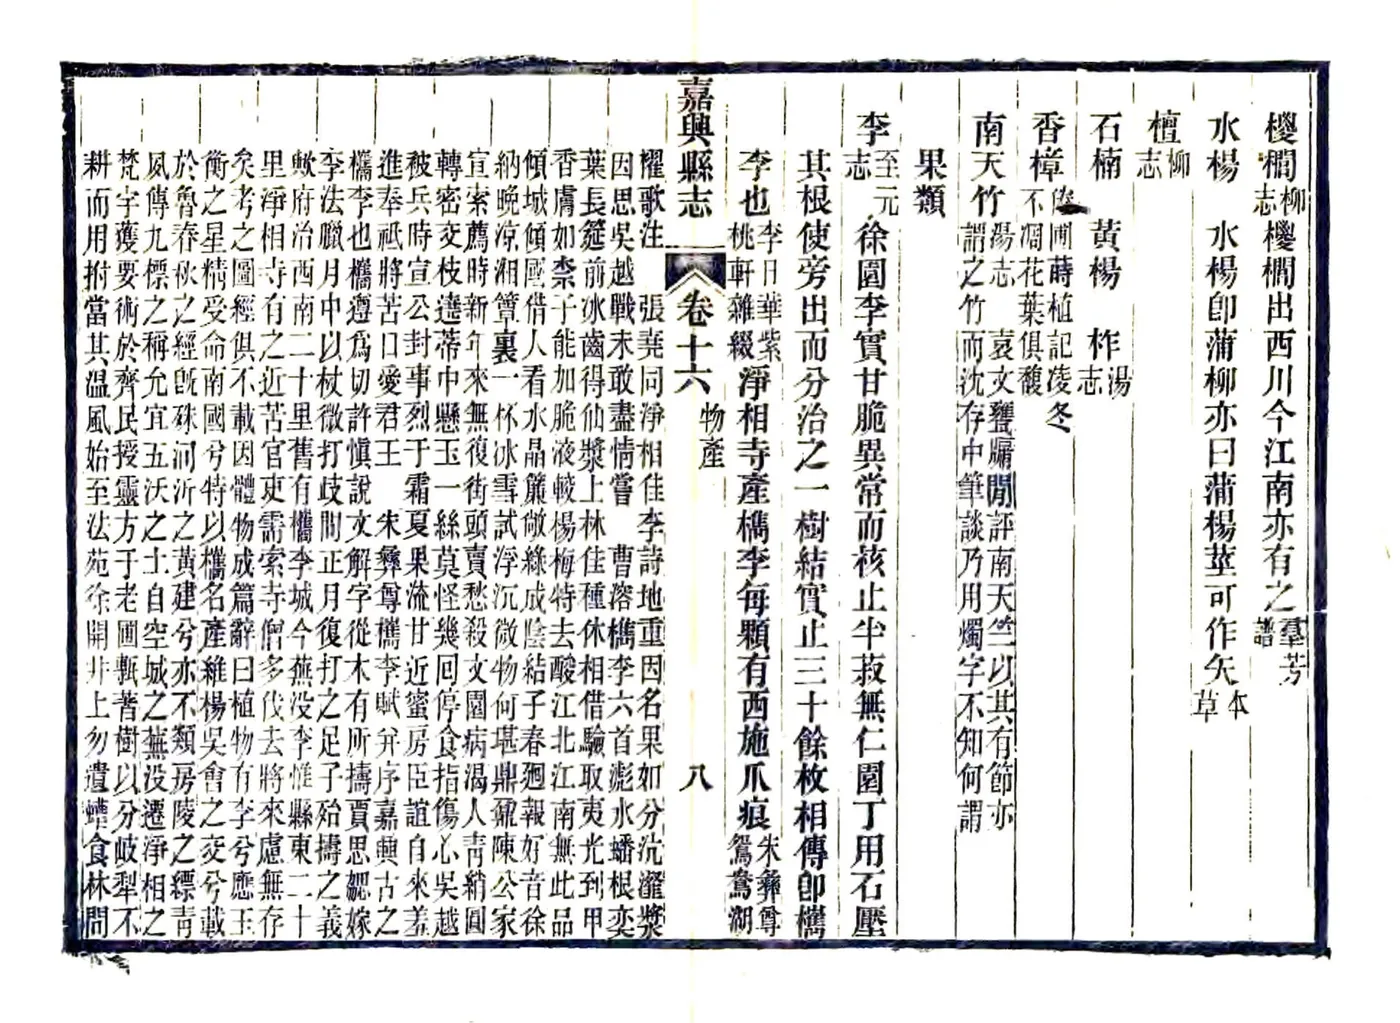 櫻櫚柳志櫻櫚出西川今江南亦有之羣芳譜
水楊　水楊卽蒲柳亦曰蒲楊莖可作矢本草
檀柳志
石楠　黃楊　柞湯志
香樟圃蒔植記凌冬不凋花葉俱馥
南天竹湯志　袁文甕牖閒評南天竺以其有節亦謂之竹而沈存中筆談乃用燭字不知何謂
果類
李至元志　徐園李實甘脆異常而核止半菽無仁園丁用石壓
其根使旁出而分治之一樹結實止三十餘枚相傳卽檇
李也李日華紫桃軒雜綴淨相寺產檇李每顆有西施爪痕朱彝尊鴛鴦湖
嘉興縣志　卷十六　物產　八
櫂歌注　張堯同淨相佳李詩地重因名果如分沆瀣漿
因思吳越戰未敢盡情嘗　曹溶檇李六首瀌水蟠根奕
葉長筵前冰齒得仙漿上林佳種休相借驗取夷光到甲
香膚如柰子能加脆液較楊梅特去酸江北江南無此品
傾城傾國借人看水晶簾敞綠成陰結子春廻報好音徐
納晚凉湘簟裏一杯冰雪試浮沉微物何堪鼎鼐陳公家
宣索薦時新年來無復街頭賣愁殺文園病渴人靑綃圓
轉密交枝遶蒂中懸玉一絲莫怪幾回停食指傷心吳越
被兵時宣公封事烈于霜夏果流甘近蜜房臣誼自來羞
進奉祇將苦口愛君王　朱彝尊檇李賦幷序嘉興古之
檇李也檇遵爲切許愼說文解字從木有所擣賈思勰嫁
李法臘月中以杖微打歧間正月復打之足子殆擣之義
歟府治西南二十里舊有檇李城今蕪没李惟縣東二十
里淨相寺有之近苦官吏需索寺僧多伐去將來慮無存
矣考之圖經俱不載因體物成篇辭曰植物有李兮應玉
衡之星精受命南國兮特以檇名產維楊吳會之交兮載
於魯春秋之經旣殊河沂之黃建兮亦不類房陵之縹靑
夙傳九標之稱允宜五沃之土自空城之蕪没遷淨相之
梵宇獲要術於齊民授靈方于老圃甎著樹以分岐犁不
耕而用拊當其溫風始至法苑徐開井上勿遺螬食林問